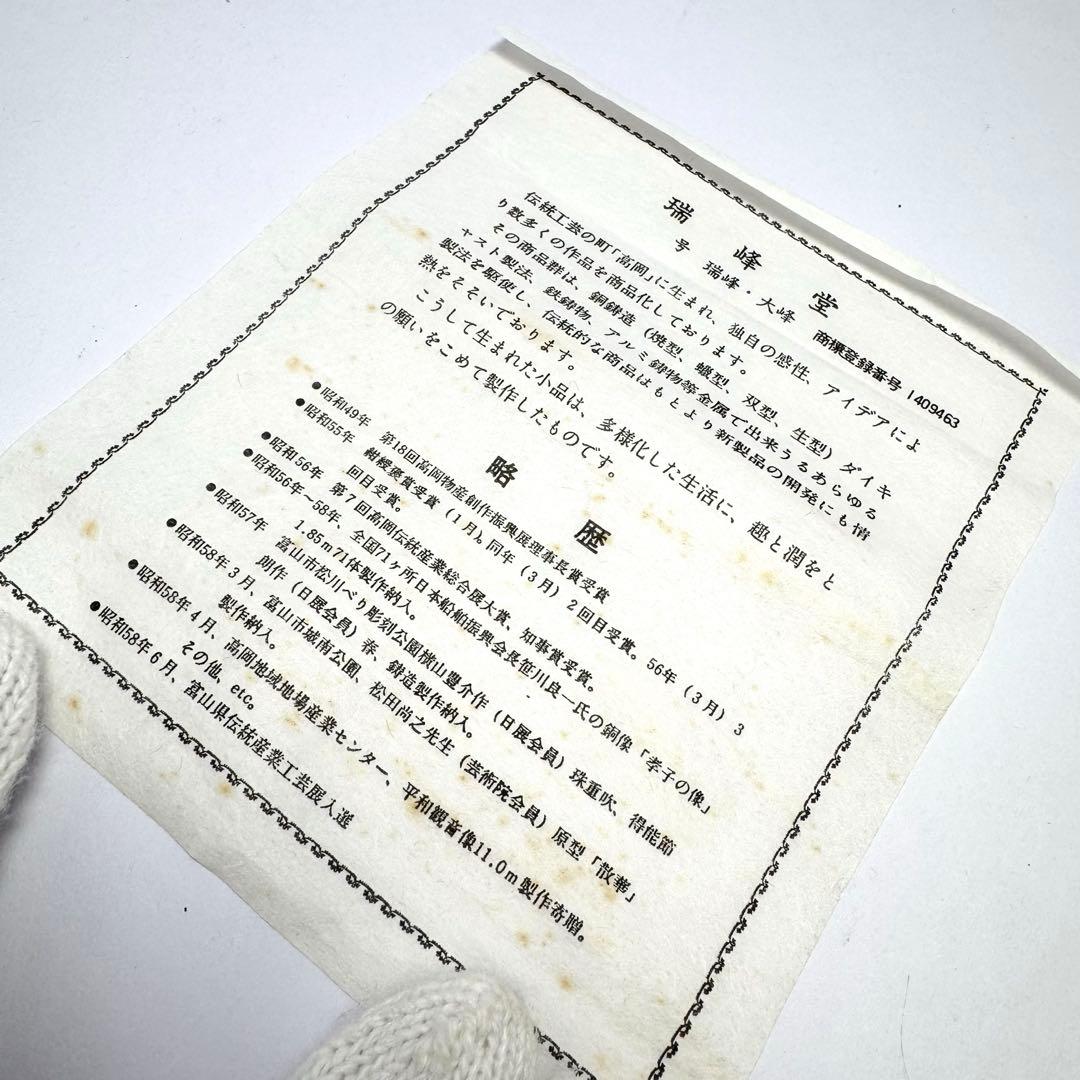 瑞峰堂
号 瑞峰・大峰 商標登録番号 1409463
伝統工芸の町「高岡」に生まれ、独自の感性、アイデアによ
り数多くの作品を商品化しております。
その商品群は、銅鋳造（焼型、蠟型、双型、生型）ダイキ
ャスト製法、鉄鋳物、アルミ鋳物等金属で出来うるあらゆる
製法を駆使し、伝統的な商品はもとより新製品の開発にも情
熱をそそいでおります。
こうして生まれた小品は、多様化した生活に、趣と潤をと
の願いをこめて製作したものです。
略歴
●昭和49年 第18回高岡物産創作振興展理事長賞受賞
●昭和55年 紺綬褒賞受賞（1月）。同年（3月）2回目受賞。56年（3月）3
回目受賞。
●昭和56年 第7回高岡伝統産業総合展大賞、知事賞受賞。
●昭和56年〜58年、全国71ヶ所日本船舶振興会長笹川良一氏の銅像「孝子の像」
1.85m71体製作納入。
●昭和57年 富山市松川べり彫刻公園横山豊介作（日展会員）珠重吹、得能節
朗作（日展会員）春、鋳造製作納入。
●昭和58年3月、富山市城南公園、松田尚之先生（芸術院会員）原型「散華」
製作納入。
●昭和58年4月、高岡地域地場産業センター、平和観音像11.0m製作寄贈。
●昭和58年6月、富山県伝統産業工芸展入選
その他、etc。